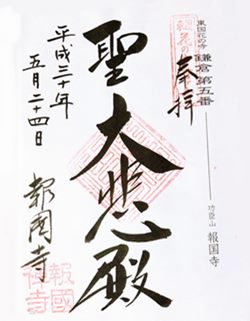 東国花の寺
鎌倉 第五番
功臣山 報国寺
奉拝
聖大悲殿
平成三十年
五月二十四日
報國寺
報國
禅寺